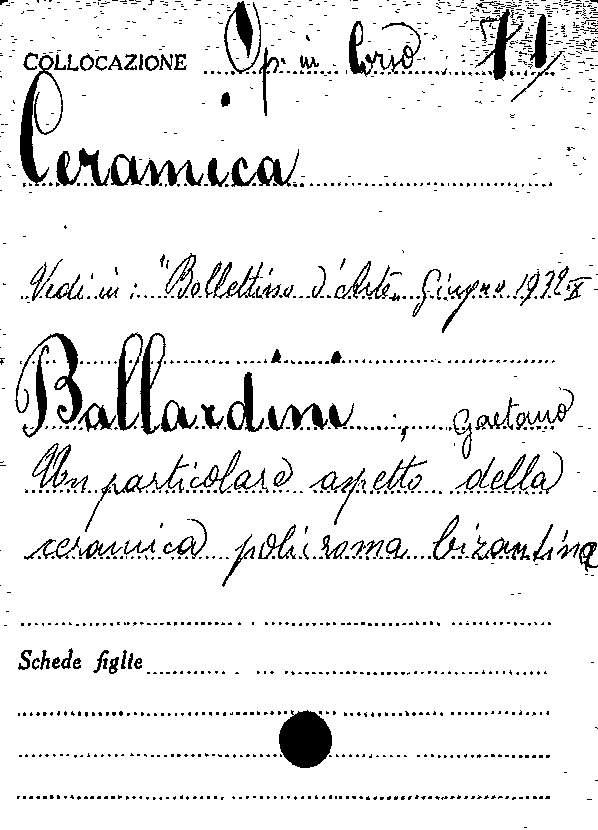 COLLOCAZIONE Op. in Corso 11
Ceramica
Vedi in: "Bollettino d'Arte„ Giugno 1932-X
Ballardini, Gaetano
Un particolare aspetto della
ceramica policroma bizantina
Schede figlie